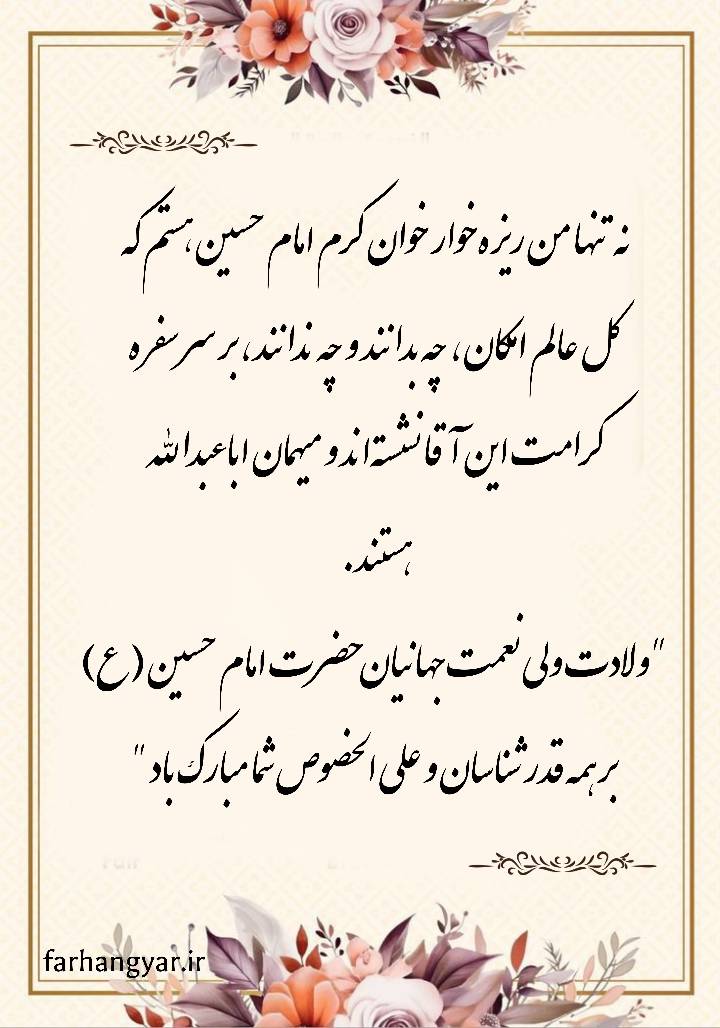 نه تنها من ریزه خوار خوان کرم امام حسین هستم که
کل عالم امکان، چه بدانند و چه ندانند، بر سر سفره
کرامت این آقا نشسته‌اند و میهمان اباعبدالله
هستند.
"ولادت ولی نعمت جهانیان حضرت امام حسین (ع)
بر همه قدرشناسان و علی الخصوص شما مبارک باد"
farhangyar.ir